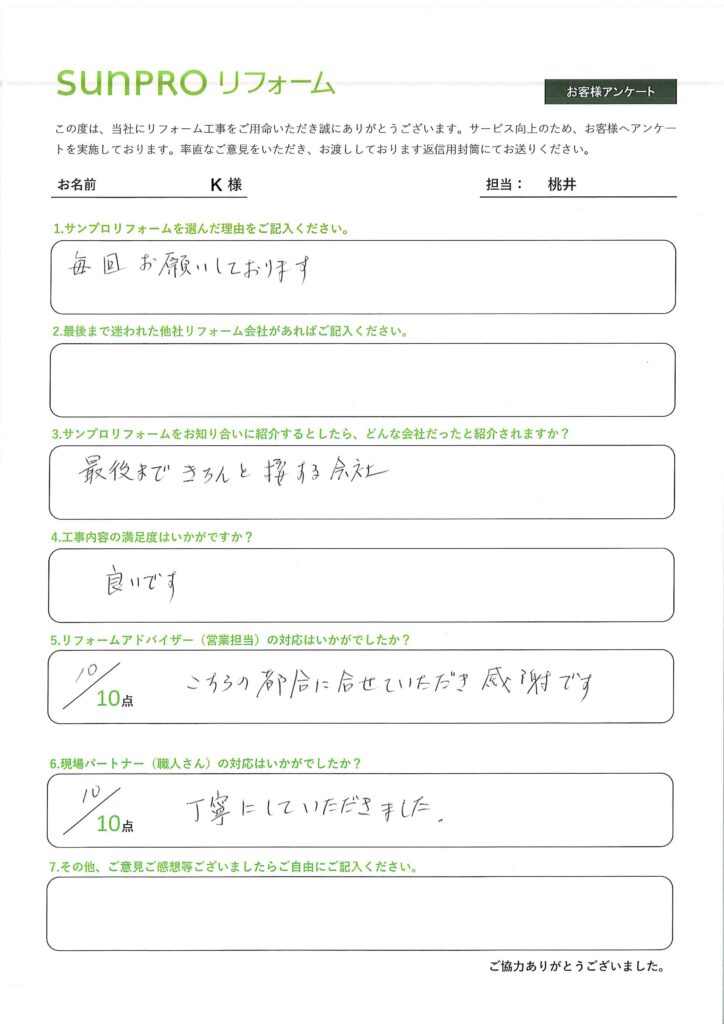 SUNPRO リフォーム
お客様アンケート
この度は、当社にリフォーム工事をご用命いただき誠にありがとうございます。サービス向上のため、お客様へアンケー
トを実施しております。率直なご意見をいただき、お渡ししております返信用封筒にてお送りください。
お名前 K 様 担当： 桃井
1.サンプロリフォームを選んだ理由をご記入ください。
毎回 お願いしております
2.最後まで迷われた他社リフォーム会社があればご記入ください。
3.サンプロリフォームをお知り合いに紹介するとしたら、どんな会社だったと紹介されますか？
最後まで きちんと 接する 会社
4.工事内容の満足度はいかがですか？
良いです
5.リフォームアドバイザー（営業担当）の対応はいかがでしたか？
10/10点 こちらの都合に合せていただき 感謝です
6.現場パートナー（職人さん）の対応はいかがでしたか？
10/10点 丁寧にしていただきました.
7.その他、ご意見ご感想等ございましたらご自由にご記入ください。
ご協力ありがとうございました。